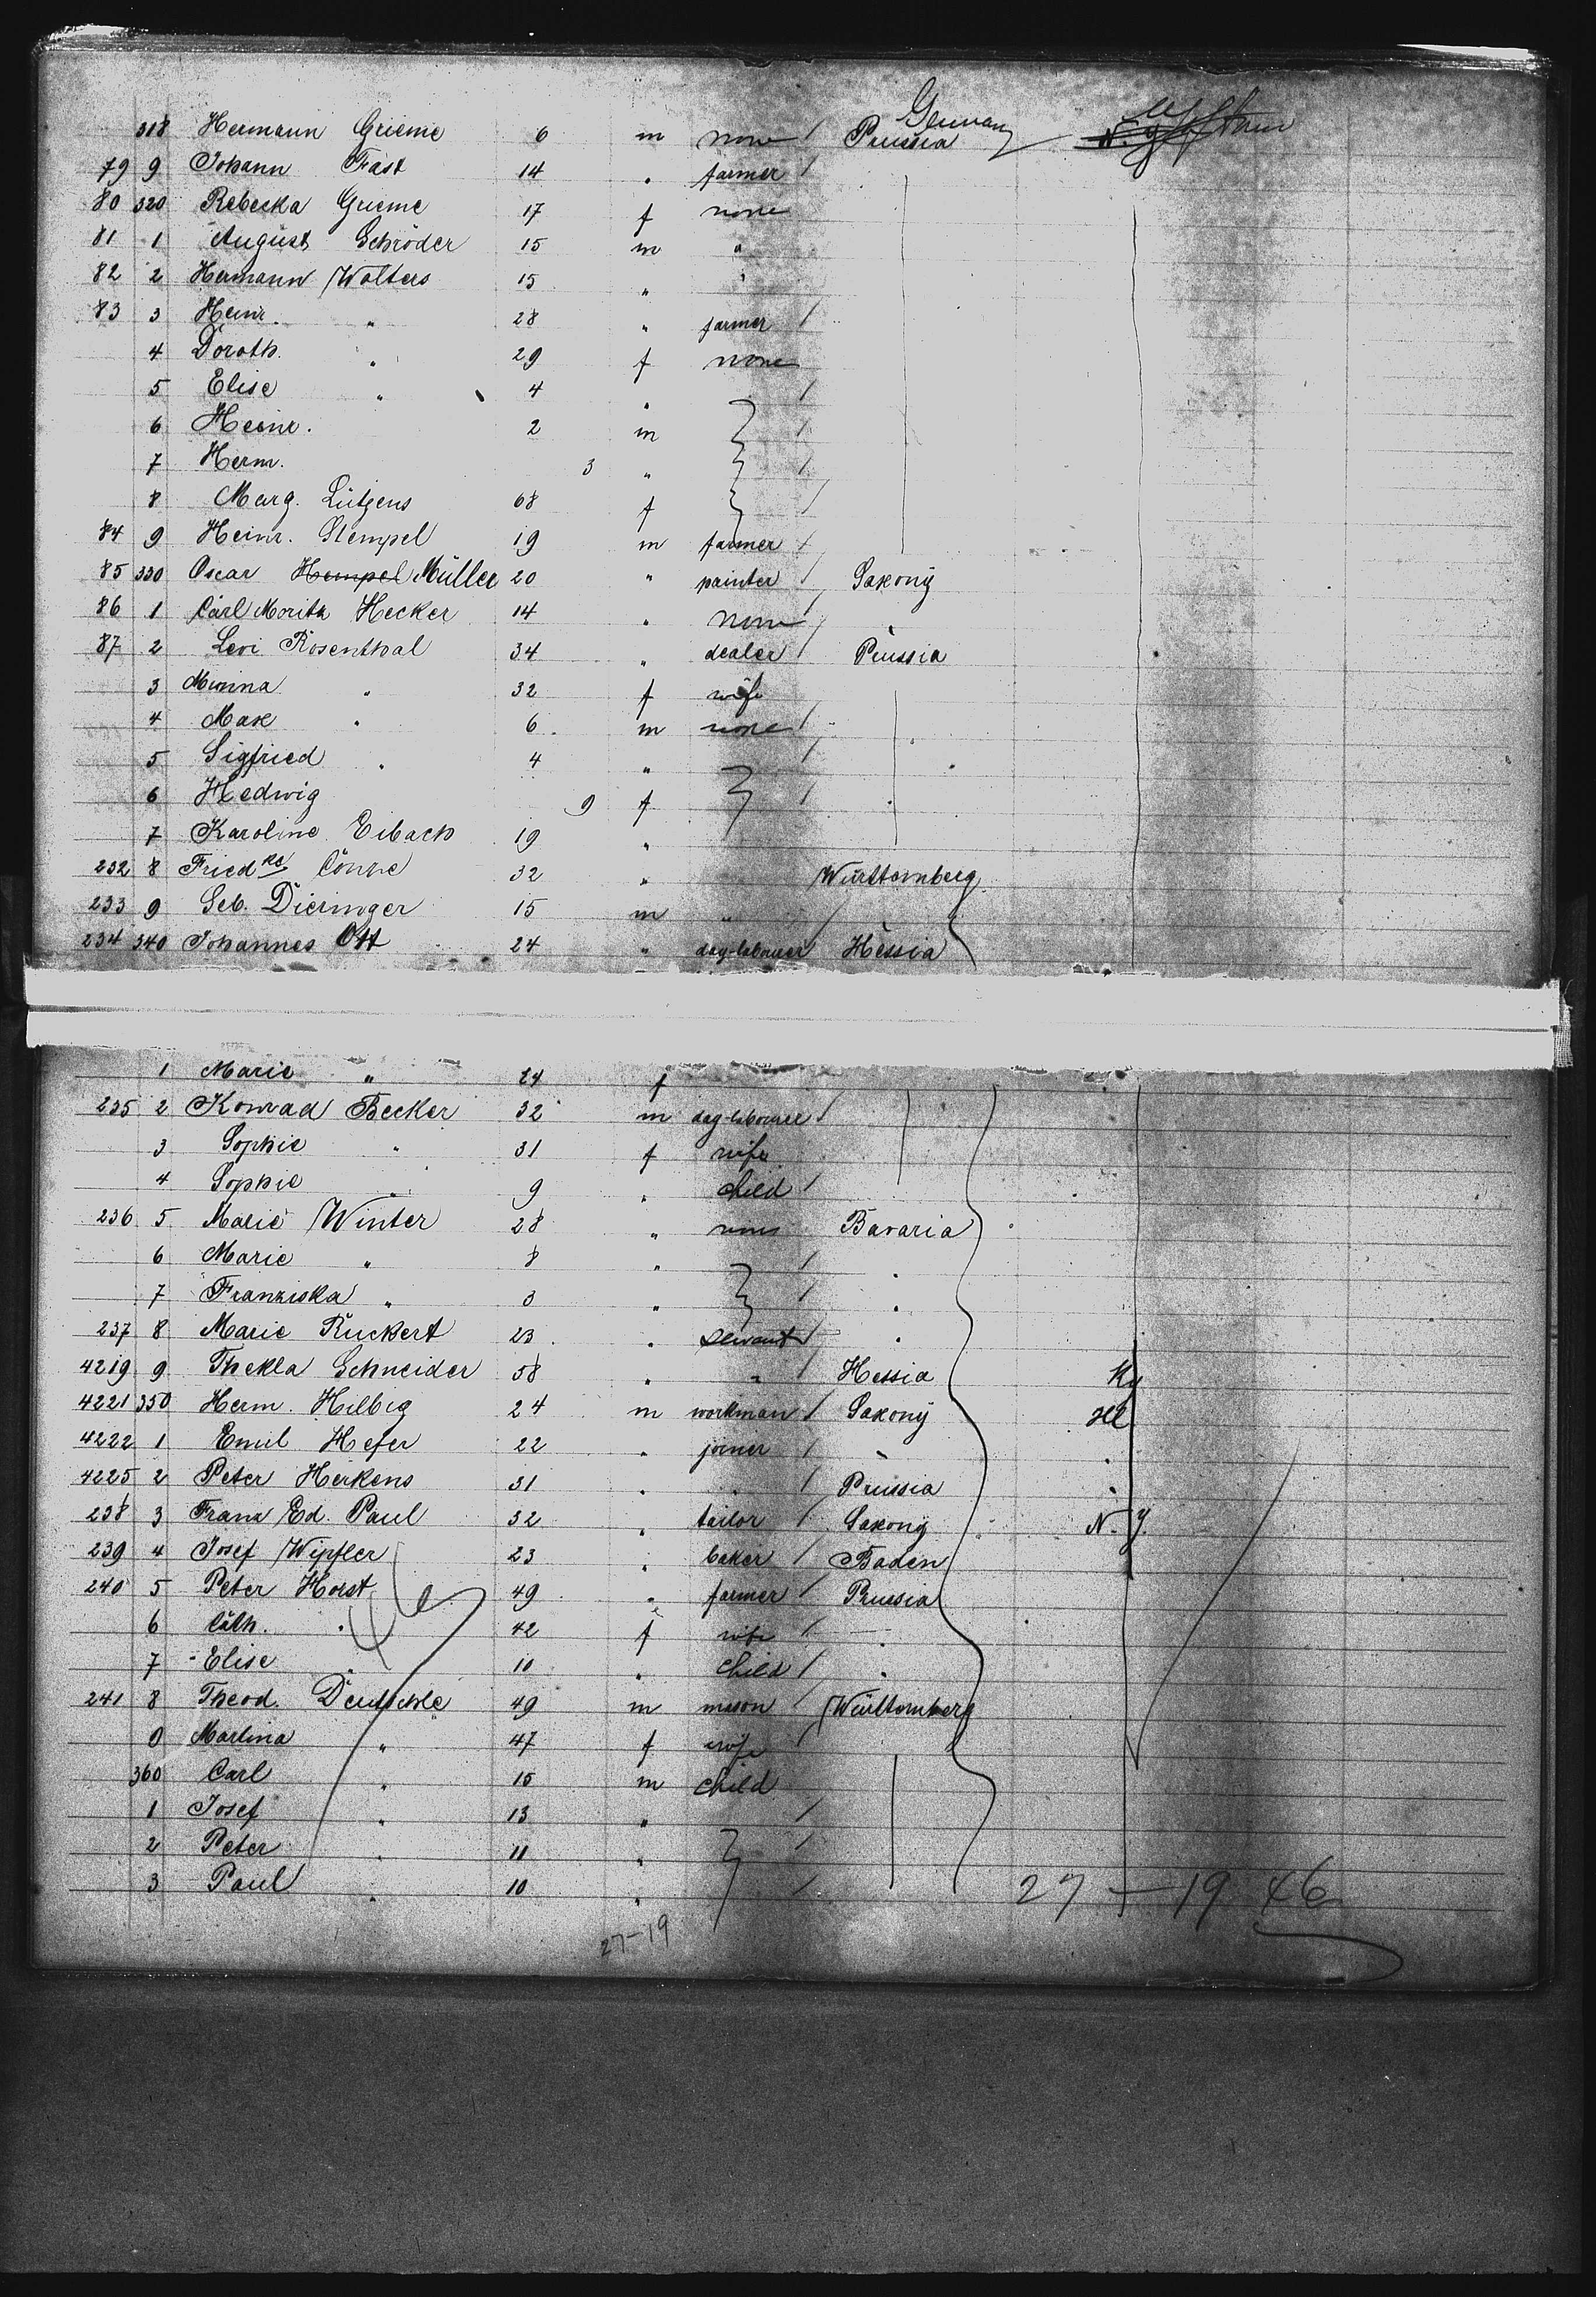 Germany
318 Hermann Grieme 6 m none / Prussia N.Y.
79 9 Johann Fast 14 " farmer /
80 320 Rebecka Grieme 17 f none
81 1 August Schröder 15 m "
82 2 Hermann Wolters 15 " "
83 3 Heinr. " 28 " farmer /
4 Doroth. " 29 f none
5 Elise " 4 " /
6 Heinr. 2 m /
7 Herm. 3 " /
8 Marg. Lütgens 68 f /
84 9 Heinr. Stempel 19 m farmer /
85 330 Oscar Hempel Müller 20 " painter / Saxony
86 1 Carl Moritz Hecker 14 " none / "
87 2 Levi Rosenthal 34 " dealer / Prussia
3 Minna " 32 f wife
4 Max " 6 m none /
5 Sigfried " 4 " /
6 Hedwig 9 f /
7 Karoline Eibach 19 "
232 8 Friedke 32 " Württemberg
233 9 Seb. Dieringer 15 m " / "
234 340 Johannes Ott 24 " day-labourer / Hessia
1 Marie " 24 f
235 2 Konrad Becker 32 m day-labourer /
3 Sophie " 31 f wife
4 Sophie " 9 " child /
236 5 Marie Winter 28 " none Bavaria
6 Marie " 8 " /
7 Franziska " 3 " / "
237 8 Marie Ruckert 23 " servant / "
4219 9 Thekla Schneider 58 " " / Hessia Ky
4221 350 Herm. Hilbig 24 m workman / Saxony Ill
4222 1 Emil Hefer 22 " joiner / " "
4225 2 Peter Heikens 31 " " / Prussia "
238 3 Franz Ed. Paul 32 " tailor / Saxony N.Y.
239 4 Josef Wipfler 23 " baker / Baden
240 5 Peter Horst 49 " farmer / Prussia
6 Cath. " 42 f wife / "
7 Elise " 10 " child / "
241 8 Theod. Deutschle 49 m mason / Württemberg
9 Martina " 47 f wife
360 Carl " 15 m child
1 Josef " 13 " /
2 Peter " 11 " /
3 Paul " 10 " /
27 – 19 46
27–19